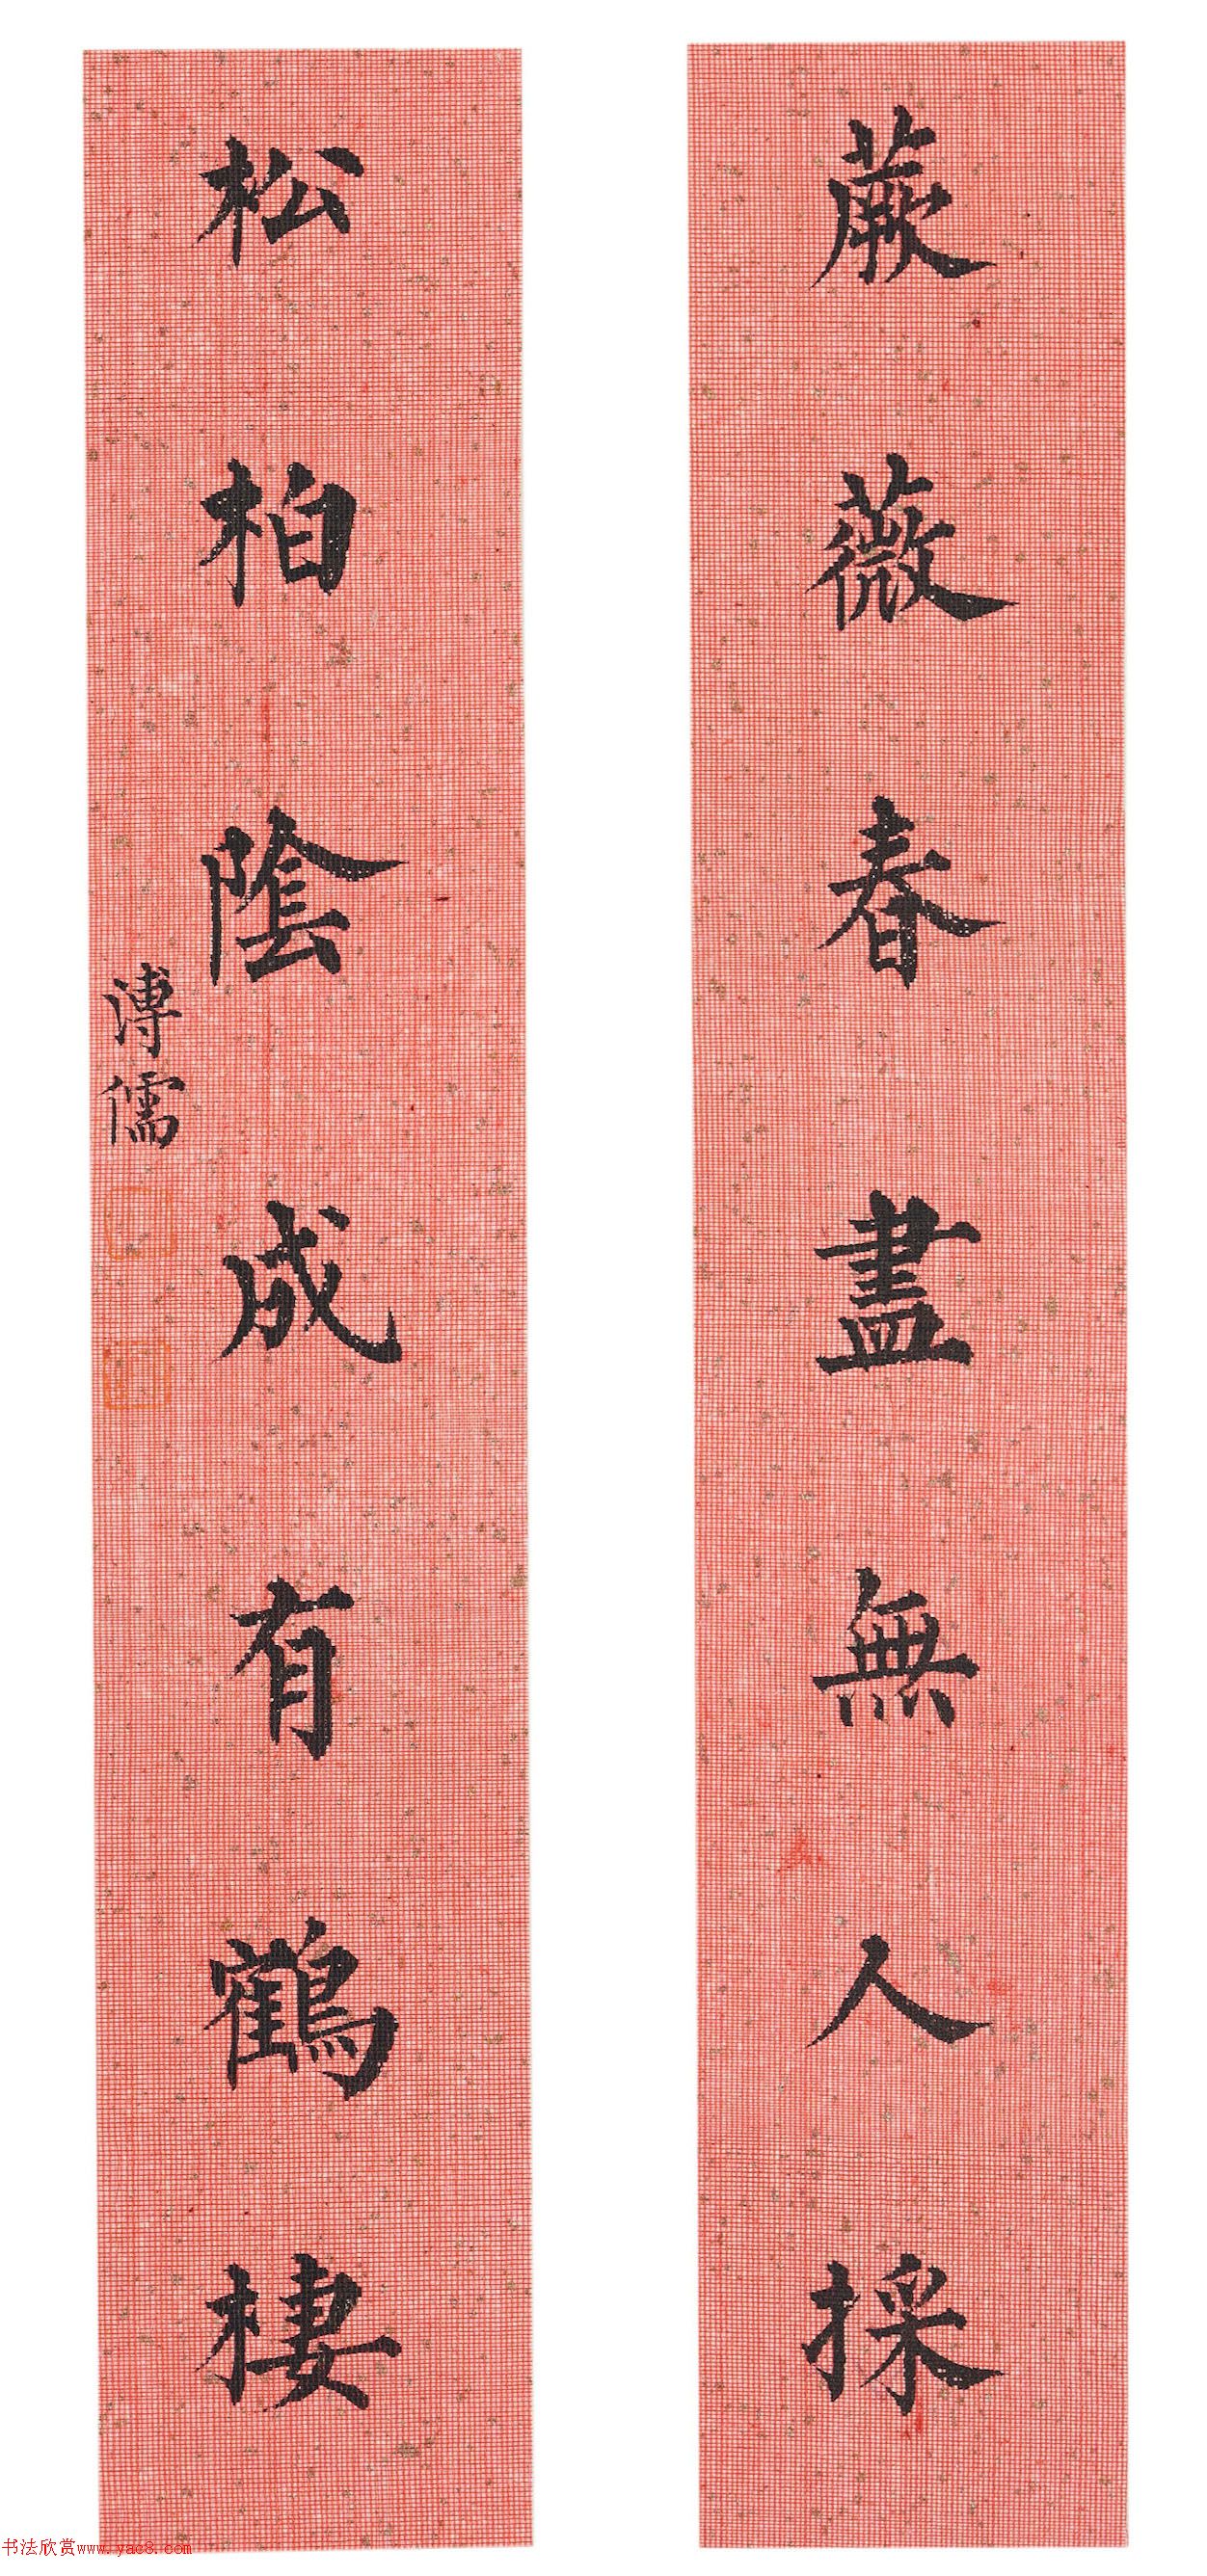 蕨薇春盡無人採
松柏陰成有鶴棲
溥儒
书法欣赏www.yac8.com